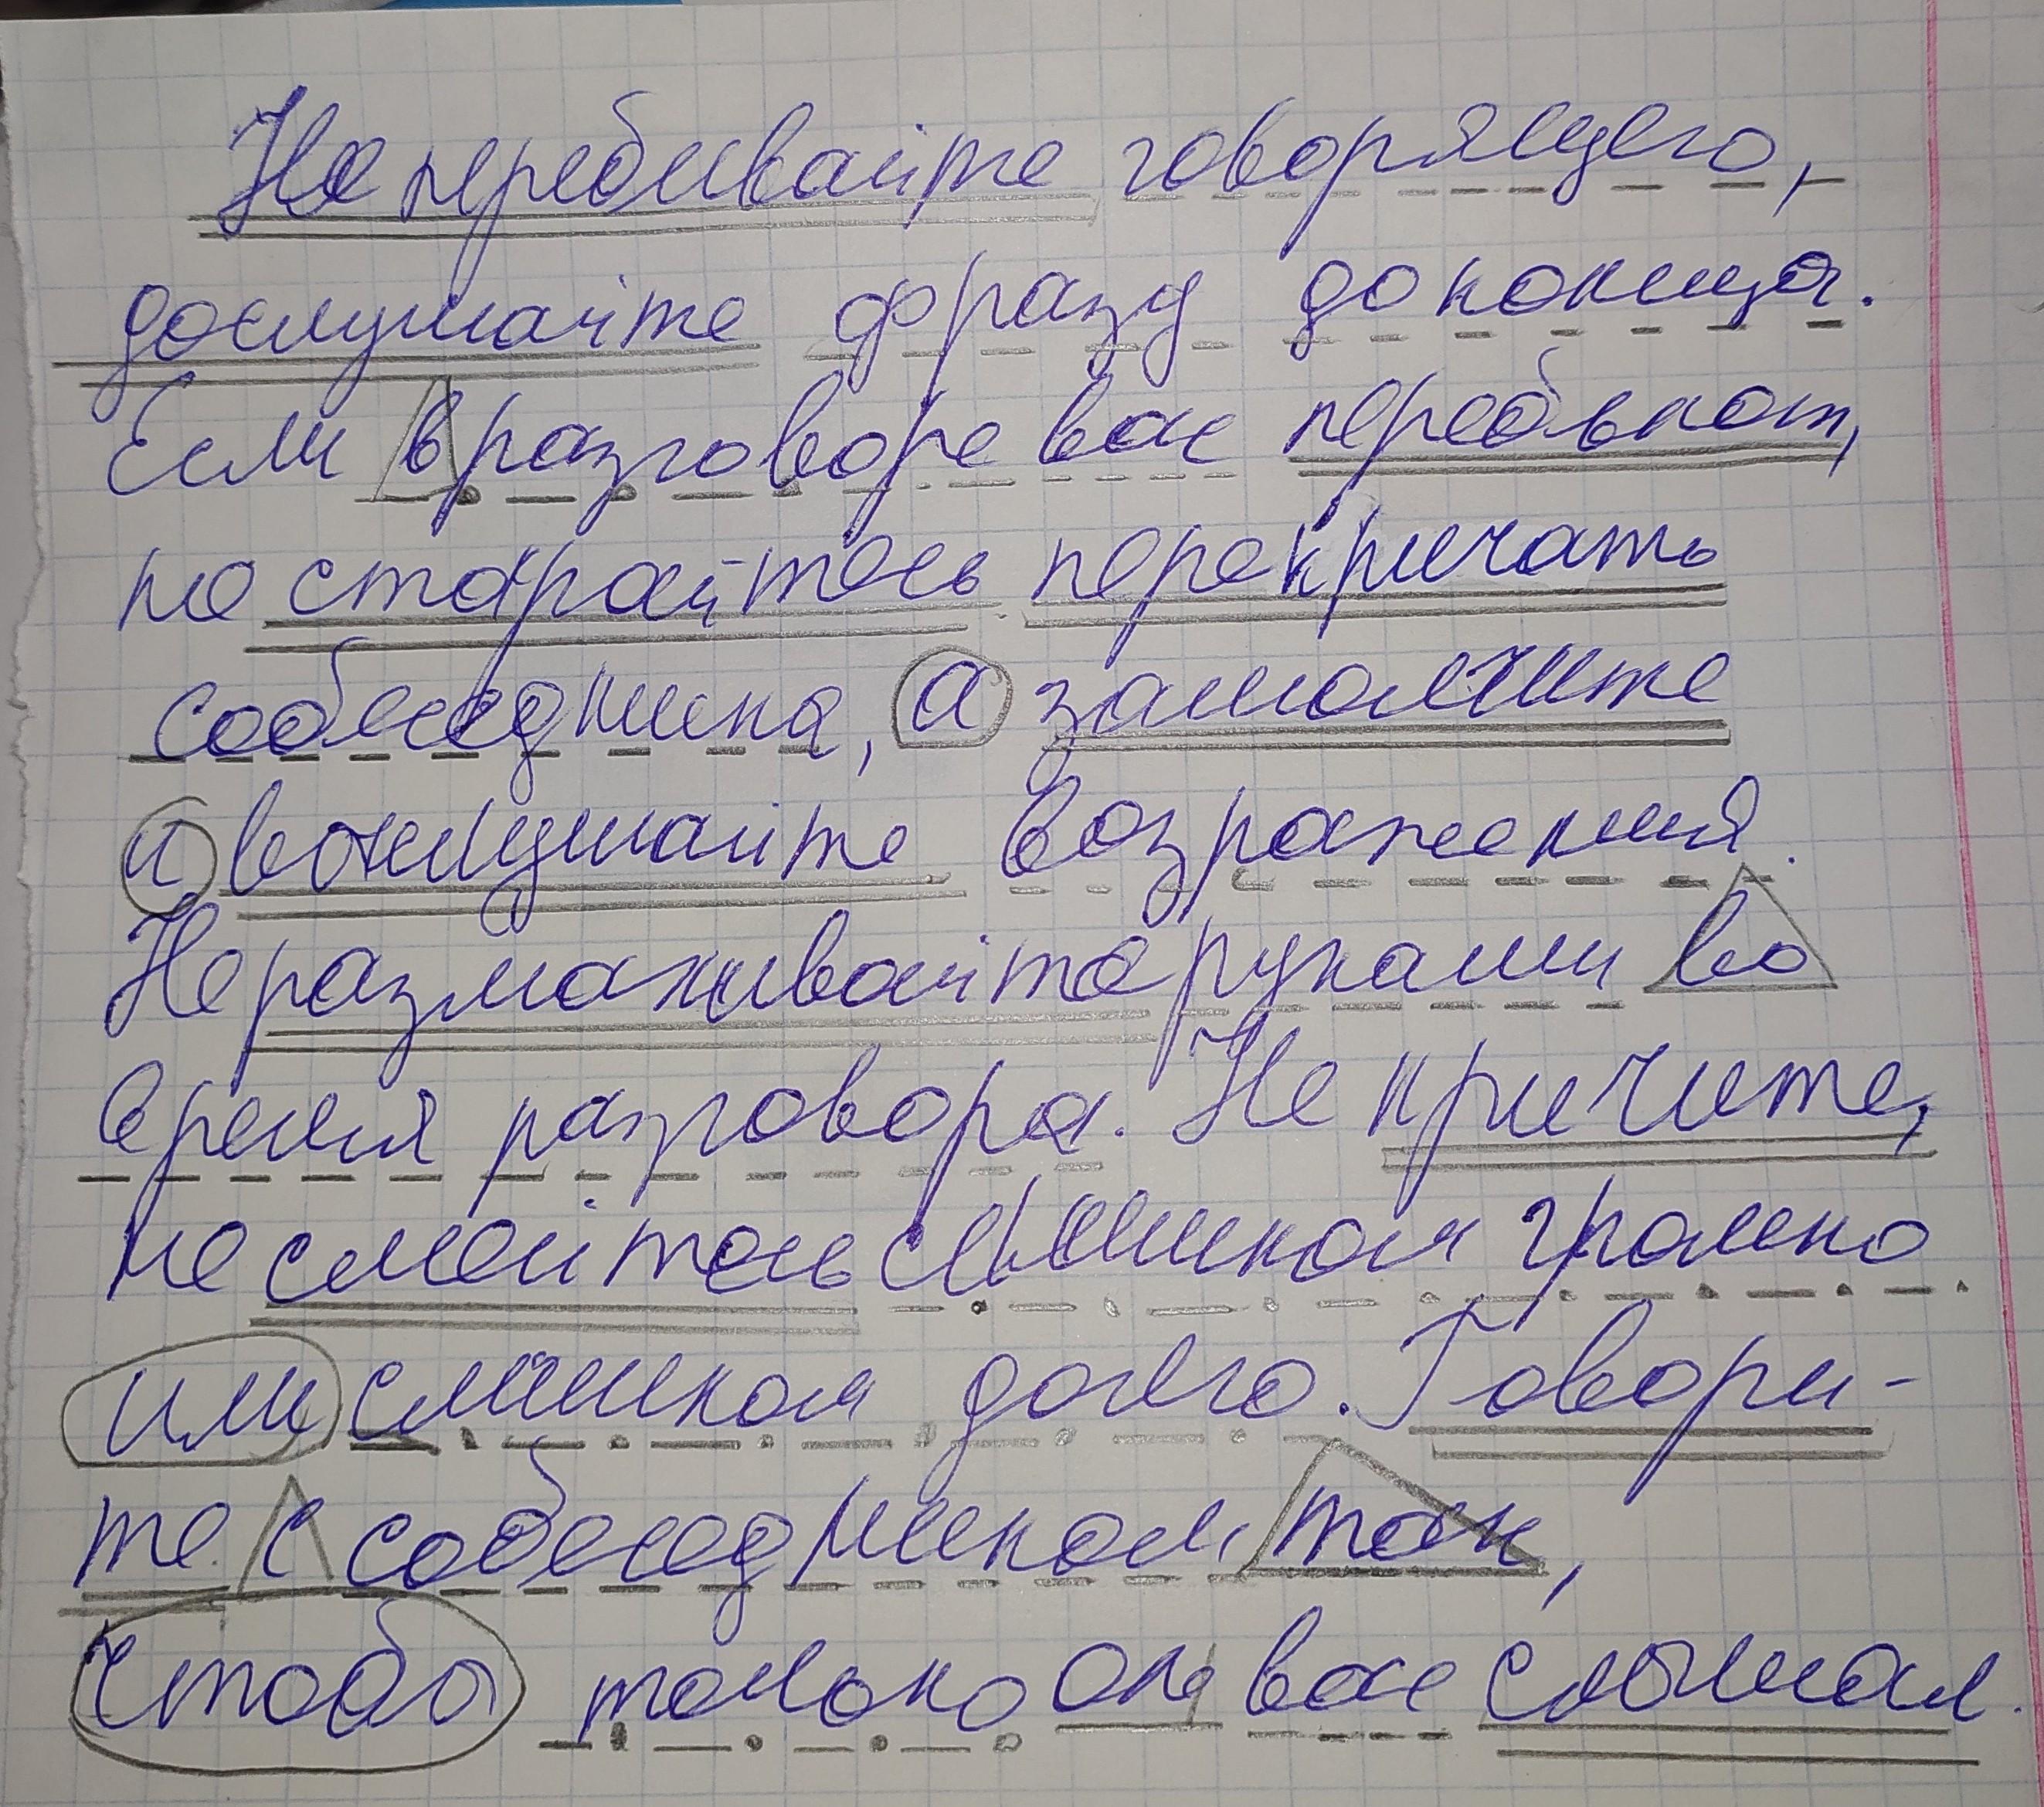 Не перебивайте говорящего,
дослушайте фразу до конца.
Если в разговоре вас перебьют,
не старайтесь перекричать
собеседника, а замолчите
и выслушайте возражения.
Не размахивайте руками во
время разговора. Не кричите,
не смейтесь слишком громко
или слишком долго. Говори-
те с собеседником так,
чтобы только он вас слышал.